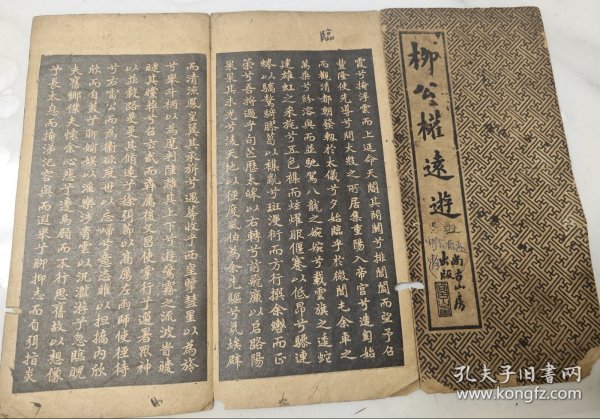 柳公權遠遊
尚古山房
出版
臨
霞兮掩浮雲而上征命天閽其開關兮排閶闔而望予召
豐隆使先導兮問大微之所居集重陽入帝宮兮造旬始
而觀清都朝發軔於太儀兮夕始臨乎於微閭屯余車之
萬乘兮紛溶與而並馳駕八龍之婉婉兮載雲旗之逶蛇
建雄虹之采旄兮五色雜而炫燿服偃蹇以低昂兮驂連
蜷以驕驁騎膠葛以雜亂兮斑漫衍而方行撰余轡而正
策兮吾將過乎句芒歷太皓以右轉兮前飛廉以啟路陽
杲杲其未光兮凌天地以徑度風伯為余先驅兮氛埃辟
而清涼鳳皇翼其承旂兮遇蓐收乎西皇擥彗星以為旍
兮舉斗柄以為麾判陸離其上下兮遊驚霧之流波旹曖
曃其曭莽兮召玄武而奔屬後文昌使掌行兮選署眾神
以並轂路曼曼其脩遠兮徐弭節以高厲左雨師使徑待
兮右雷公而為衛欲度世以忘歸兮意恣睢以担撟內欣
欣而自美兮聊媮娛以淫樂涉青雲以汎濫游兮忽臨睨
夫舊鄉僕夫懷余心悲兮邊馬顧而不行思舊故以想像
兮長太息而掩涕氾容與而遐舉兮聊抑志而自弭指炎
孔夫子旧书网
book.kongfz.com